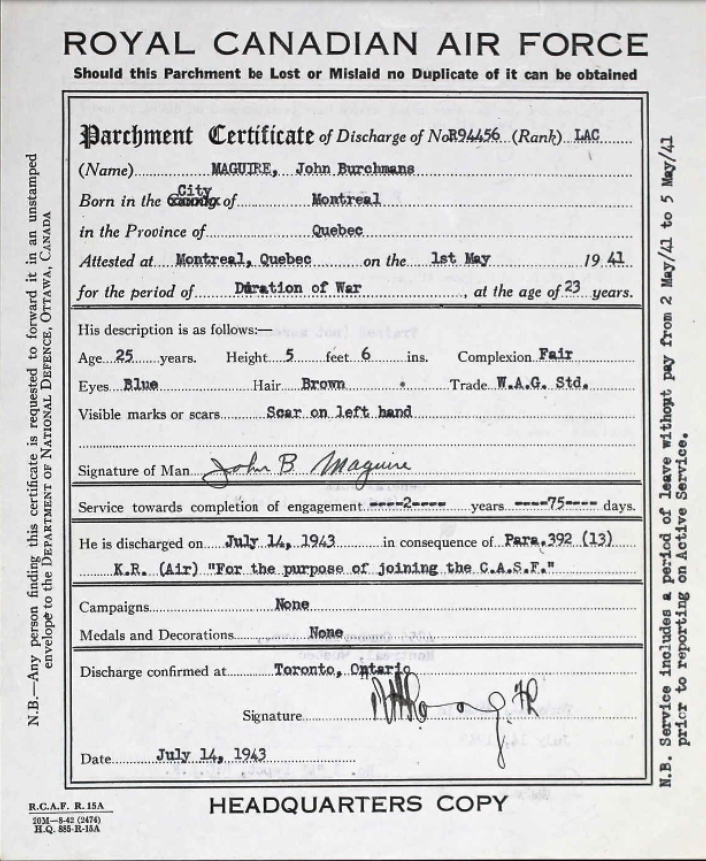 ROYAL CANADIAN AIR FORCE
Should this Parchment be Lost or Mislaid no Duplicate of it can be obtained
Parchment Certificate of Discharge of No R94456 (Rank) LAC
(Name) MAGUIRE, John Burchmans
City
Born in the County of Montreal
in the Province of Quebec
Attested at Montreal, Quebec on the 1st May 19 41
for the period of Duration of War, at the age of 23 years.
His description is as follows:—
Age 25 years. Height 5 feet 6 ins. Complexion Fair
Eyes Blue Hair Brown Trade W.A.G. Std.
Visible marks or scars Scar on left hand
Signature of Man John B Maguire
Service towards completion of engagement ----2---- years ----75---- days.
He is discharged on July 14, 1943 in consequence of Para.392 (13)
K.R. (Air) "For the purpose of joining the C.A.S.F."
Campaigns None
Medals and Decorations None
Discharge confirmed at Toronto, Ontario
Signature
Date July 14, 1943
R.C.A.F. R.15A
20M—8-42 (2474)
H.Q. 885-R-15A
HEADQUARTERS COPY
N.B.—Any person finding this certificate is requested to forward it in an unstamped
envelope to the DEPARTMENT OF NATIONAL DEFENCE, OTTAWA, CANADA
N.B. Service includes a period of leave without pay from 2 May/41 to 5 May/41
prior to reporting on Active Service.